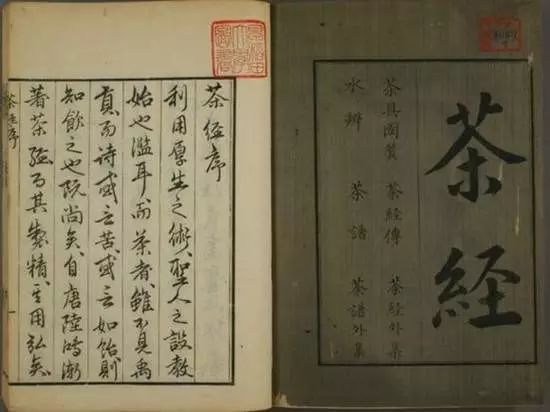 茶経
茶具圖賛 茶経傳 茶経外集
水辨 茶譜 茶譜外集
茶経序
利用厚生之術聖人之設教
始也濫耳而茶者雖不見禹
貢而詩或言苦或言如飴則
知飲之也既尚矣自唐陸鴻漸
著茶経而其製精其用弘矣
茶経序 一